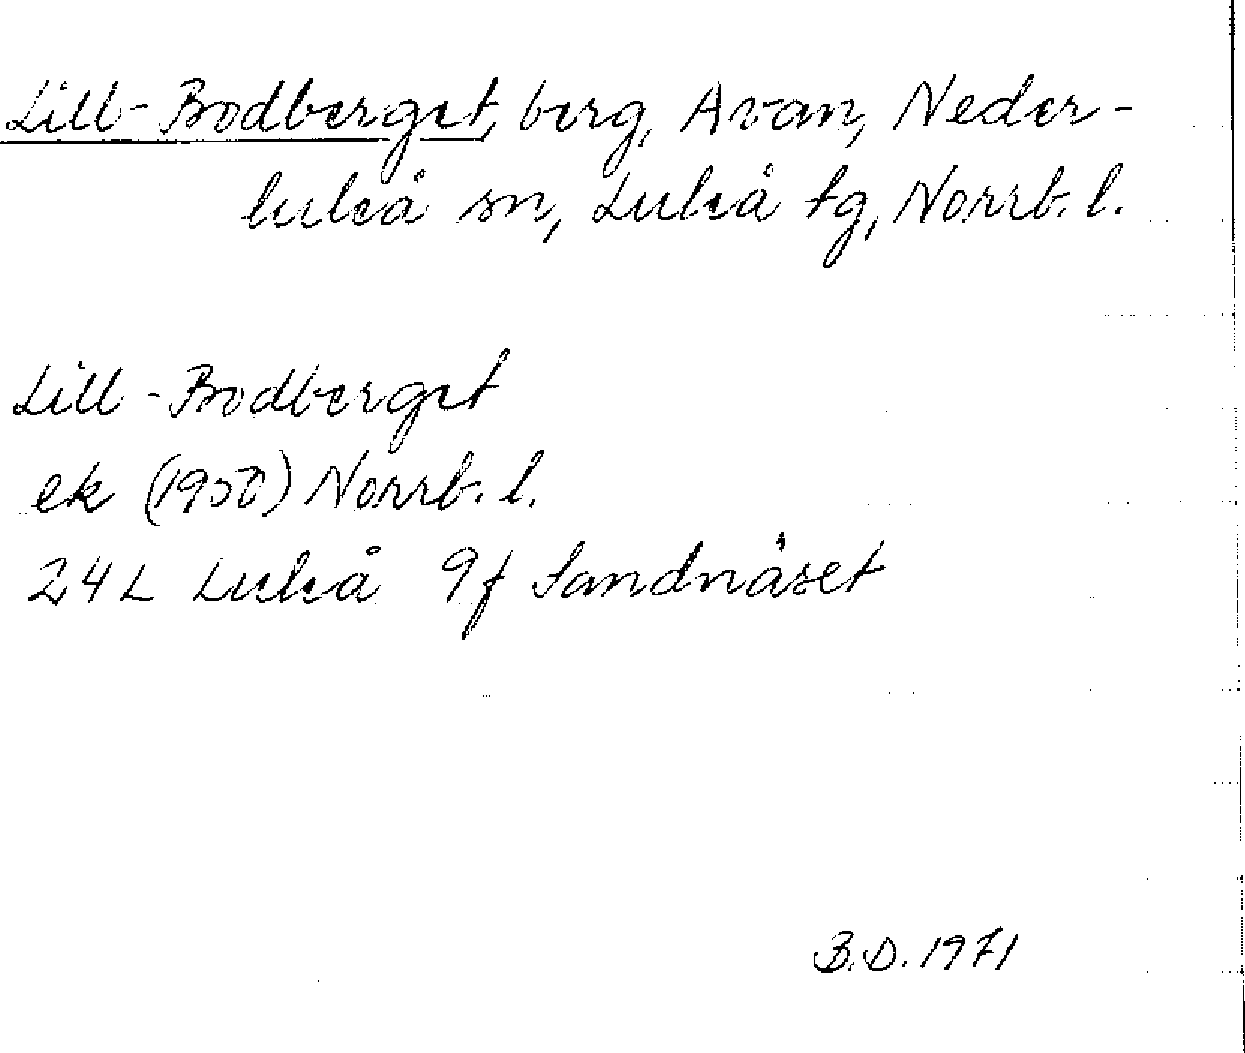 Lill-Bodberget, berg, Avan, Neder-
luleå sn, Luleå tg, Norrb. l.
Lill-Bodberget
ek (1950) Norrb. l.
24 L Luleå 9f Sandnäset
B.D. 1971